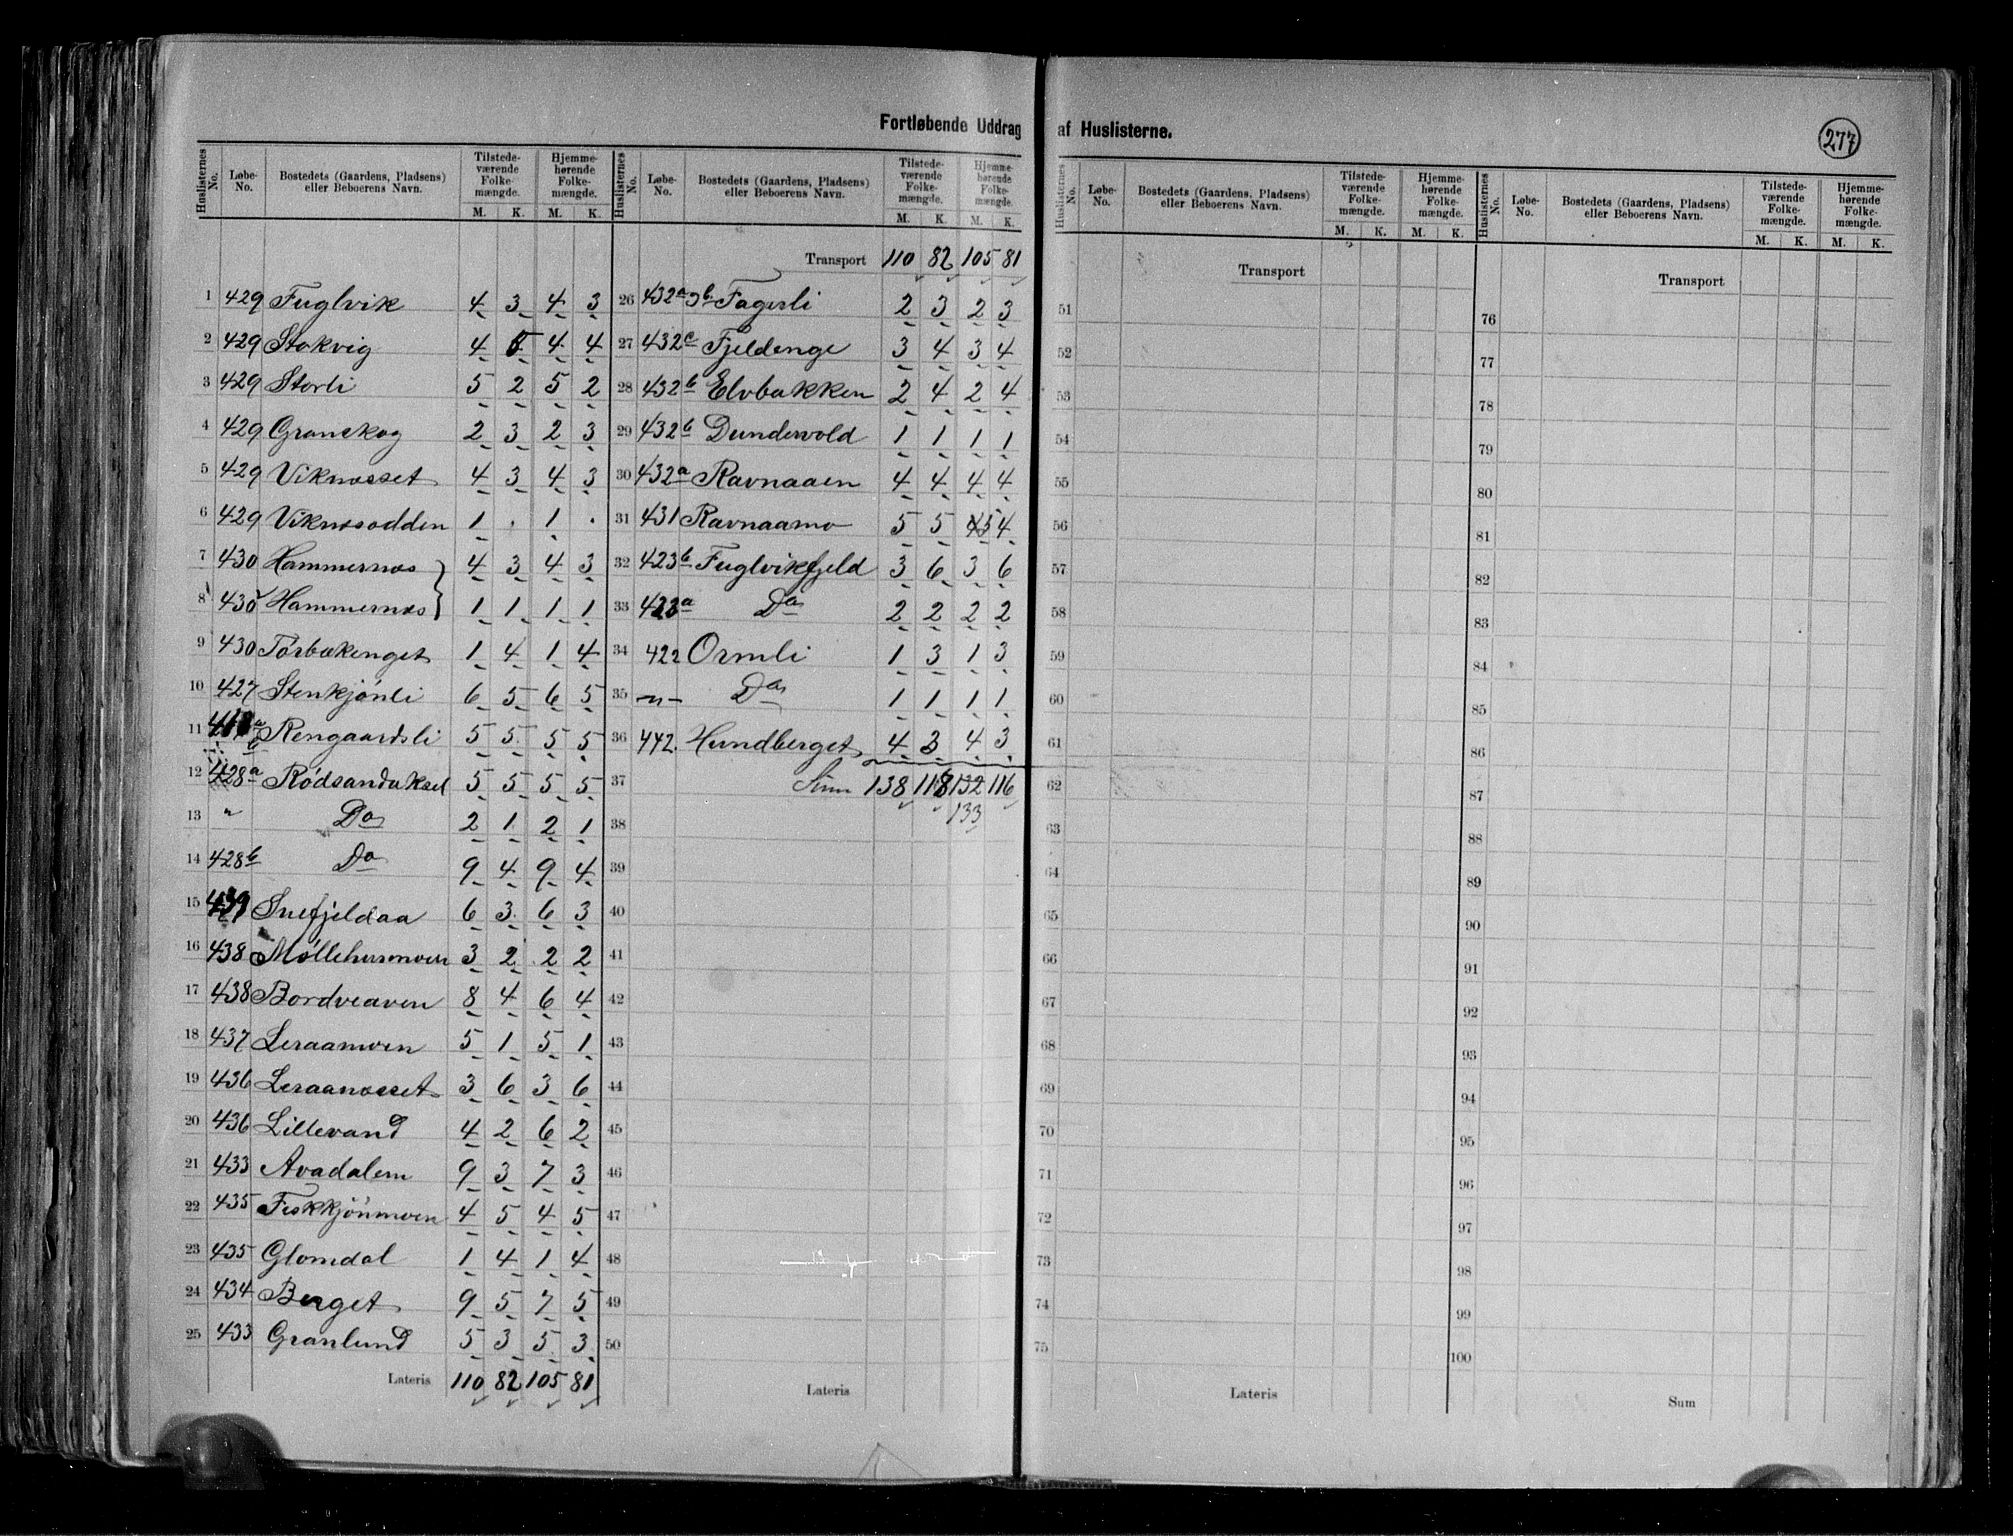 Fortløbende Uddrag af Huslisterne.
277
Huslisternes No. | Løbe-No. | Bostedets (Gaardens, Pladsens) eller Beboerens Navn. | Tilstede-værende Folke-mængde. M. K. | Hjemme-hørende Folke-mængde. M. K.
1 429 Fuglvik 4 3 4 3
2 429 Stokvig 4 5 4 4
3 429 Storli 5 2 5 2
4 429 Granskog 2 3 2 3
5 429 Viknæsset 4 3 4 3
6 429 Viknæsodden 1 . 1 .
7 430 Hammernæs 4 3 4 3
8 430 Hammernæs 1 1 1 1
9 430 Torbækenget 1 4 1 4
10 427 Stenkjönli 6 5 6 5
11 Rengaardsli 5 5 5 5
12 428a Rödsandaksel 5 5 5 5
13 " Do 2 1 2 1
14 428b Do 9 4 9 4
15 439 Snefjeldaa 6 3 6 3
16 438 Möllehusmoen 3 2 2 2
17 438 Bordveaven 8 4 6 4
18 437 Leraamoen 5 1 5 1
19 436 Leraanæsset 3 6 3 6
20 436 Lillevand 4 2 6 2
21 433 Avadalem 9 3 7 3
22 435 Fiskkjönmoen 4 5 4 5
23 435 Glomdal 1 4 1 4
24 434 Berget 9 5 7 5
25 433 Granlund 5 3 5 3
Lateris 110 82 105 81
Huslisternes No. | Løbe-No. | Bostedets (Gaardens, Pladsens) eller Beboerens Navn. | Tilstede-værende Folke-mængde. M. K. | Hjemme-hørende Folke-mængde. M. K.
Transport 110 82 105 81
26 432a Fagerli 2 3 2 3
27 432c Fjeldenge 3 4 3 4
28 432b Elvbakken 2 4 2 4
29 432b Dundervold 1 1 1 1
30 432a Ravnaaen 4 4 4 4
31 431 Ravnaamo 5 5 5 4
32 423b Fuglvikfjeld 3 6 3 6
33 423a Do 2 2 2 2
34 422 Ormli 1 3 1 3
35 -"- Do 1 1 1 1
36 442. Hundberget 4 3 4 3
37 Sum 138 118 132 116
38 133
39
40
41
42
43
44
45
46
47
48
49
50
Lateris
Huslisternes No. | Løbe-No. | Bostedets (Gaardens, Pladsens) eller Beboerens Navn. | Tilstede-værende Folke-mængde. M. K. | Hjemme-hørende Folke-mængde. M. K.
Transport
51
52
53
54
55
56
57
58
59
60
61
62
63
64
65
66
67
68
69
70
71
72
73
74
75
Lateris
Huslisternes No. | Løbe-No. | Bostedets (Gaardens, Pladsens) eller Beboerens Navn. | Tilstede-værende Folke-mængde. M. K. | Hjemme-hørende Folke-mængde. M. K.
Transport
76
77
78
79
80
81
82
83
84
85
86
87
88
89
90
91
92
93
94
95
96
97
98
99
100
Sum